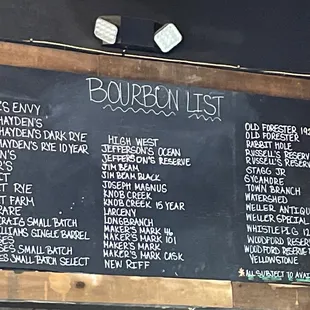 BOURBON LIST
'S ENVY
HAYDEN'S
HAYDEN'S DARK RYE
HAYDEN'S RYE 10 YEAR
N'S
RYE
FARM
RARE
CRAIG SMALL BATCH
WILLIAMS SINGLE BARREL
SES SMALL BATCH
SES SMALL BATCH SELECT
HIGH WEST
JEFFERSON'S OCEAN
JEFFERSON'S RESERVE
JIM BEAM
JIM BEAM BLACK
JOSEPH MAGNUS
KNOB CREEK
KNOB CREEK 15 YEAR
LARCENY
LONGBRANCH
MAKER'S MARK 46
MAKER'S MARK 101
MAKER'S MARK
MAKER'S MARK CASK
NEW RIFF
OLD FORESTER 192
OLD FORESTER
RABBIT HOLE
RUSSELL'S RESERVE
RUSSELL'S RESERV
STAGG JR
SYCAMORE
TOWN BRANCH
WATERSHED
WELLER ANTIQU
WELLER SPECIAL
WHISTLE PIG 12
WOODFORD RESER
WOODFORD RESERVE
YELLOWSTONE
*ALL SUBJECT TO AVAI